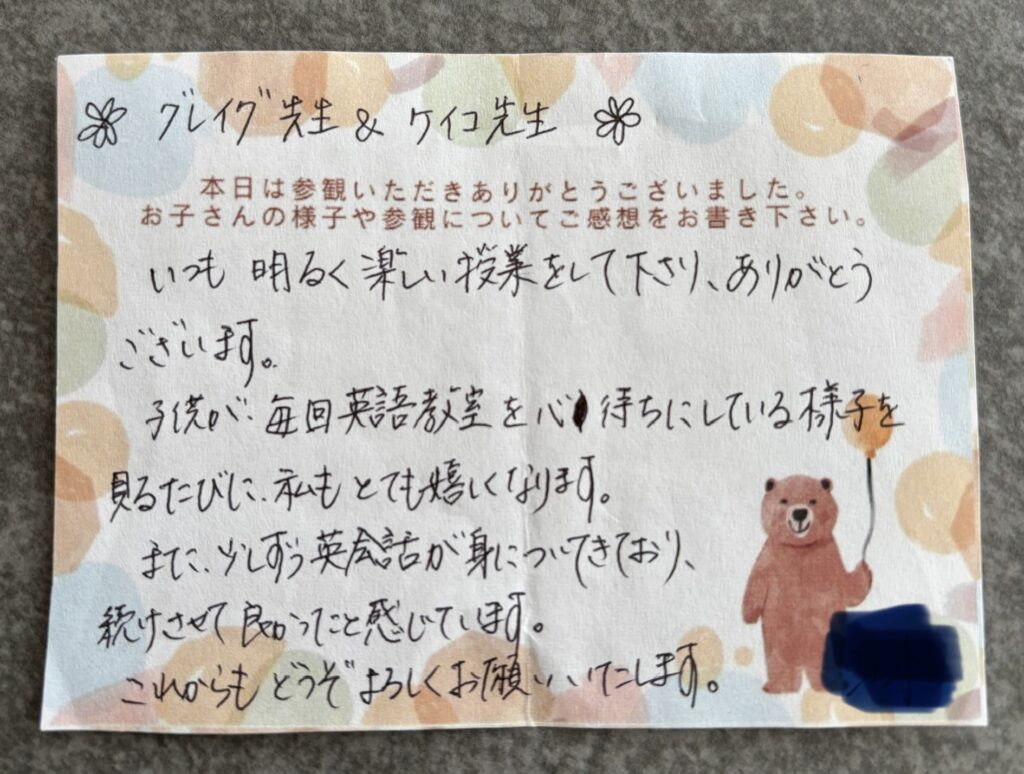 グレイグ先生 & ケイコ先生
本日は参観いただきありがとうございました。
お子さんの様子や参観についてご感想をお書き下さい。
いつも 明るく楽しい授業をして下さり、ありがとう
ございます。
子供が、毎回英語教室を心待ちにしている様子を
見るたびに、私もとても嬉しくなります。
また、少しずつ英会話が身についてきており、
続けさせて良かったと感じています。
これからもどうぞよろしくお願いいたします。